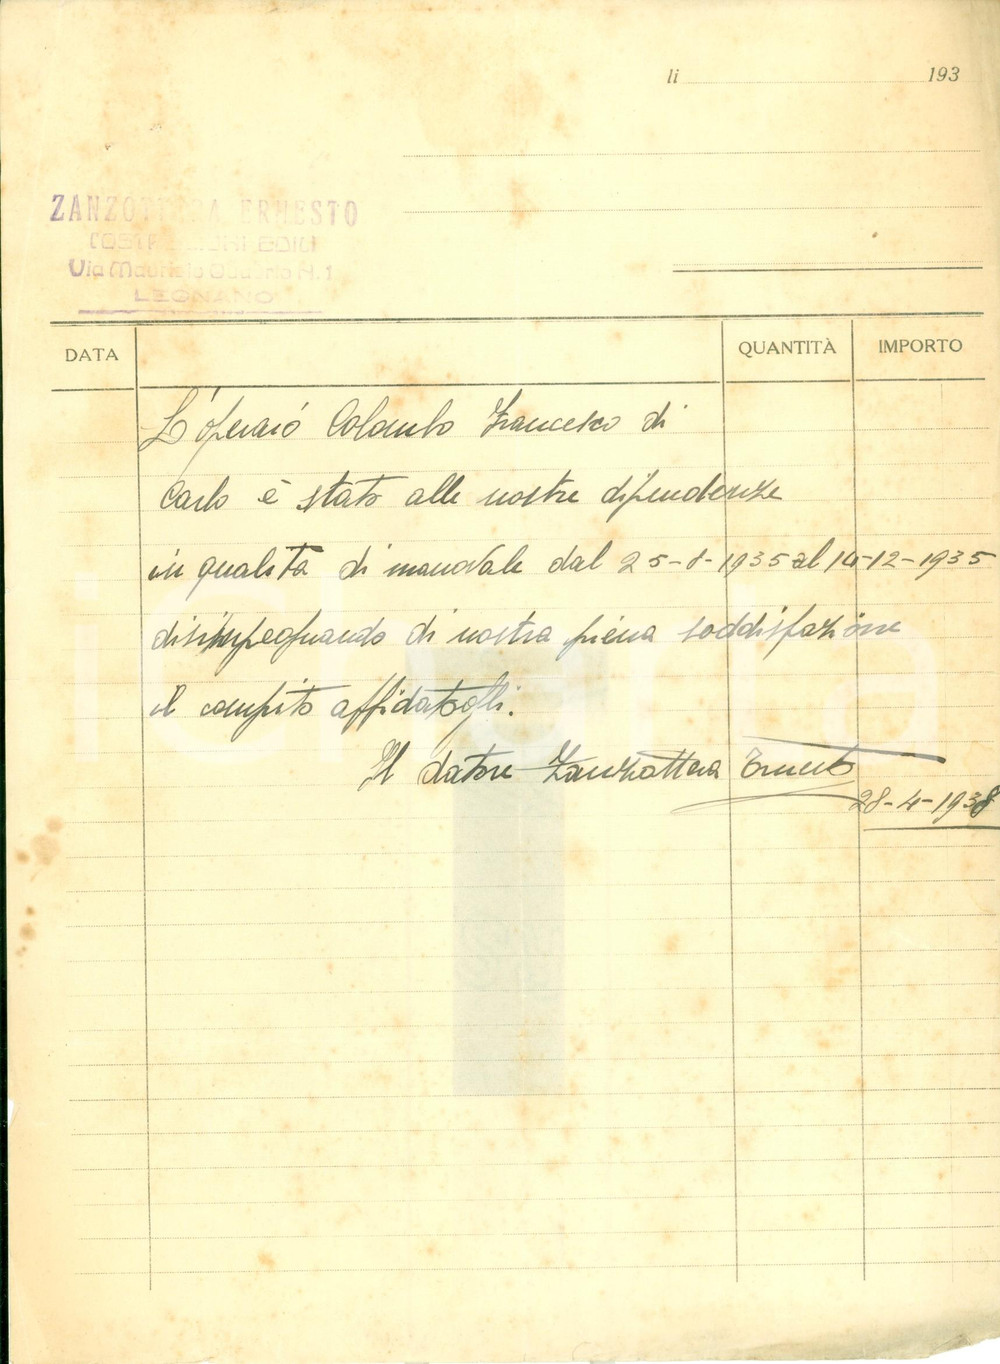 li 193
ZANZOTTERA ERNESTO
COSTRUZIONI EDILI
Via Maurizio N. 1
LEGNANO
DATA QUANTITÀ IMPORTO
L'operaio Colombo Francesco di
Carlo è stato alle nostre dipendenze
in qualità di manovale dal 25-8-1935 al 14-12-1935
disimpegnando di nostra piena soddisfazione
il compito affidatogli.
Il datore Zanzottera Ernesto
28-4-1938